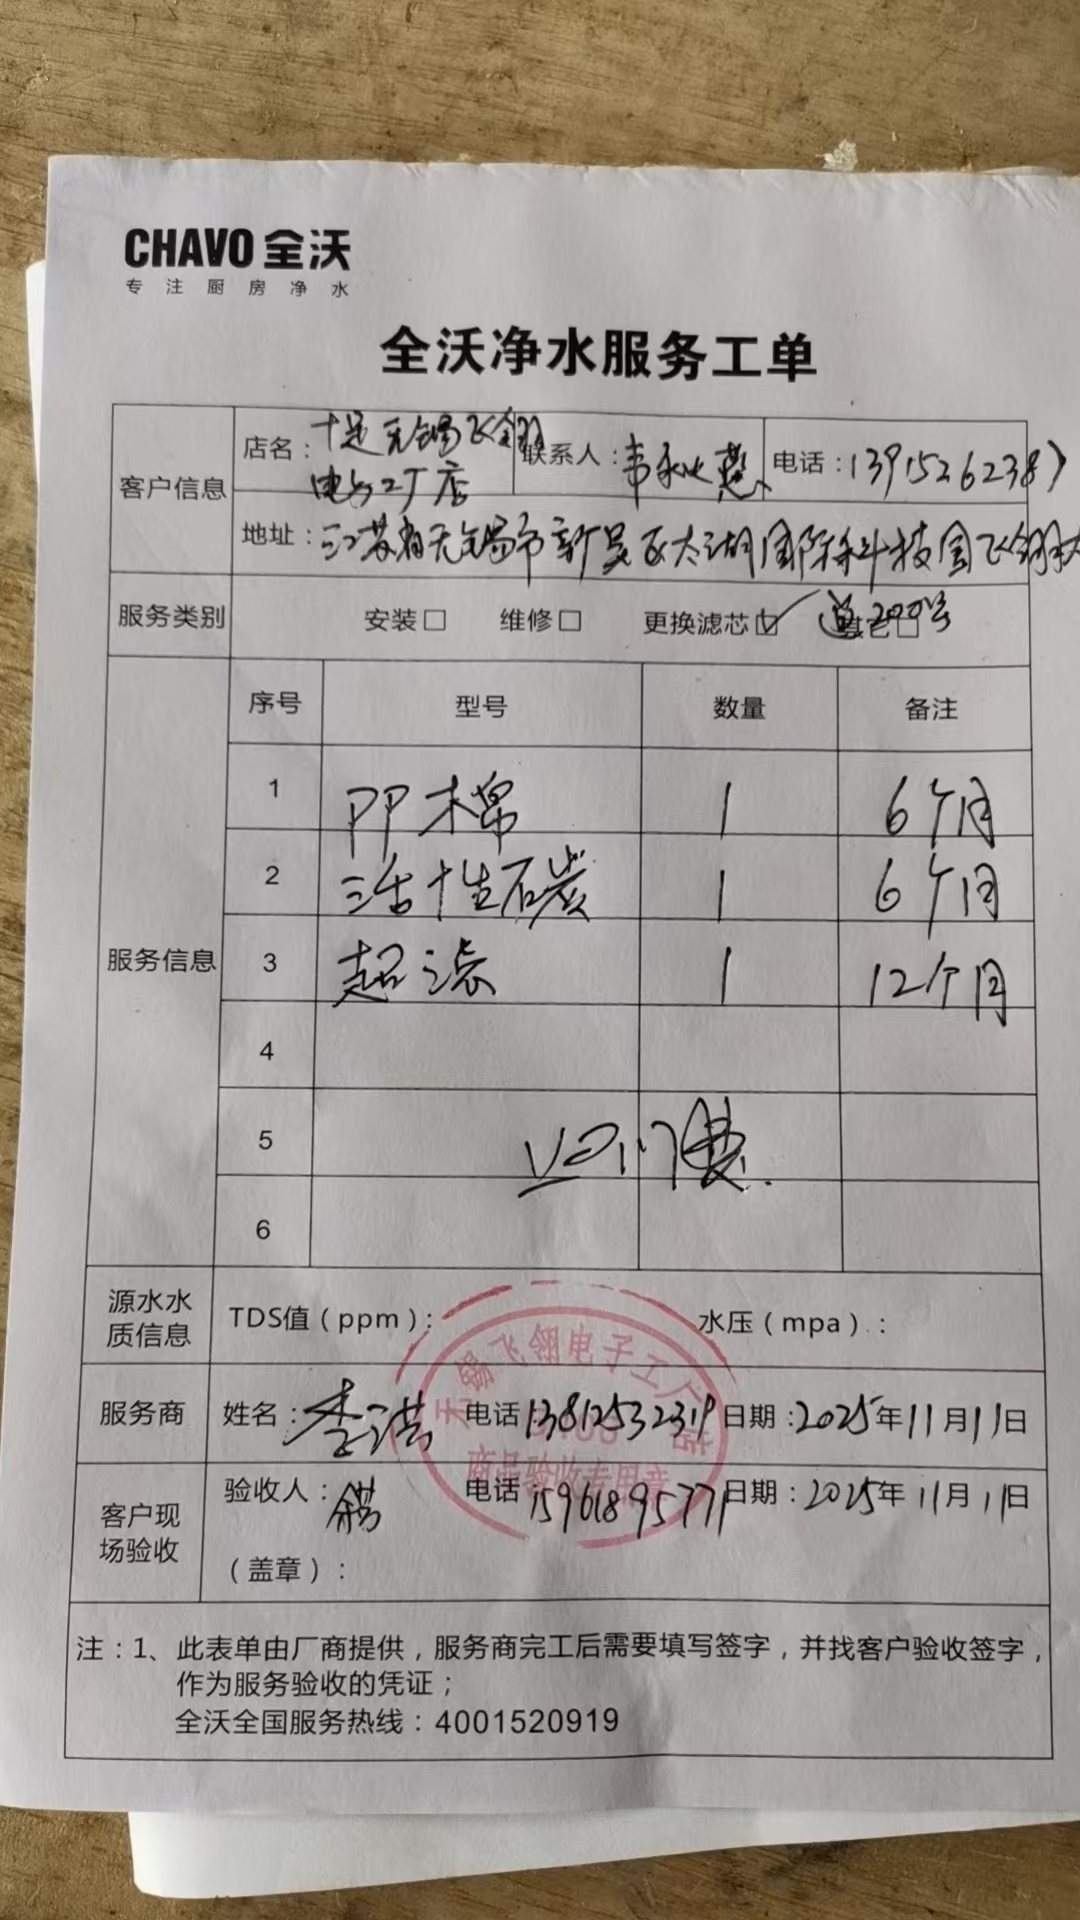 CHAVO 全沃
专注厨房净水
全沃净水服务工单
客户信息
店名：十足无锡飞翎
电子工厂店
联系人：韦秋慧
电话：13915262387
地址：江苏省无锡市新吴区太湖国际科技园飞翎
服务类别
安装□ 维修□ 更换滤芯☑ 其它□ 200号
序号 型号 数量 备注
服务信息
1 PP木棉 1 6个月
2 活性石炭 1 6个月
3 超滤 1 12个月
4
5
6
源水水质信息
TDS值（ppm）： 水压（mpa）：
服务商
姓名：李洪 电话 13812532319 日期：2025年11月11日
客户现场验收
验收人： 电话 15961895771 日期：2025年11月11日
（盖章）：
无锡飞翎电子工
商品验收专用章
注：1、此表单由厂商提供，服务商完工后需要填写签字，并找客户验收签字，
作为服务验收的凭证；
全沃全国服务热线：4001520919